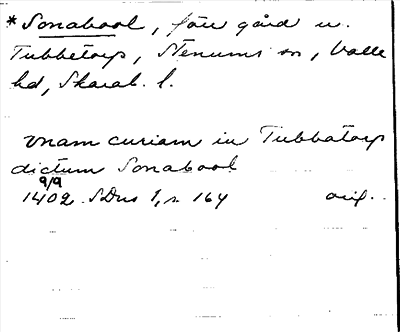 * Sonabool, förr gård u.
Tubbetorp, Stenums sn, Valle
hd, Skarab. l.
vnam curiam in Tubbatorp
dictum Sonabool
9/9
1402 SDns 1, s. 164 orig.